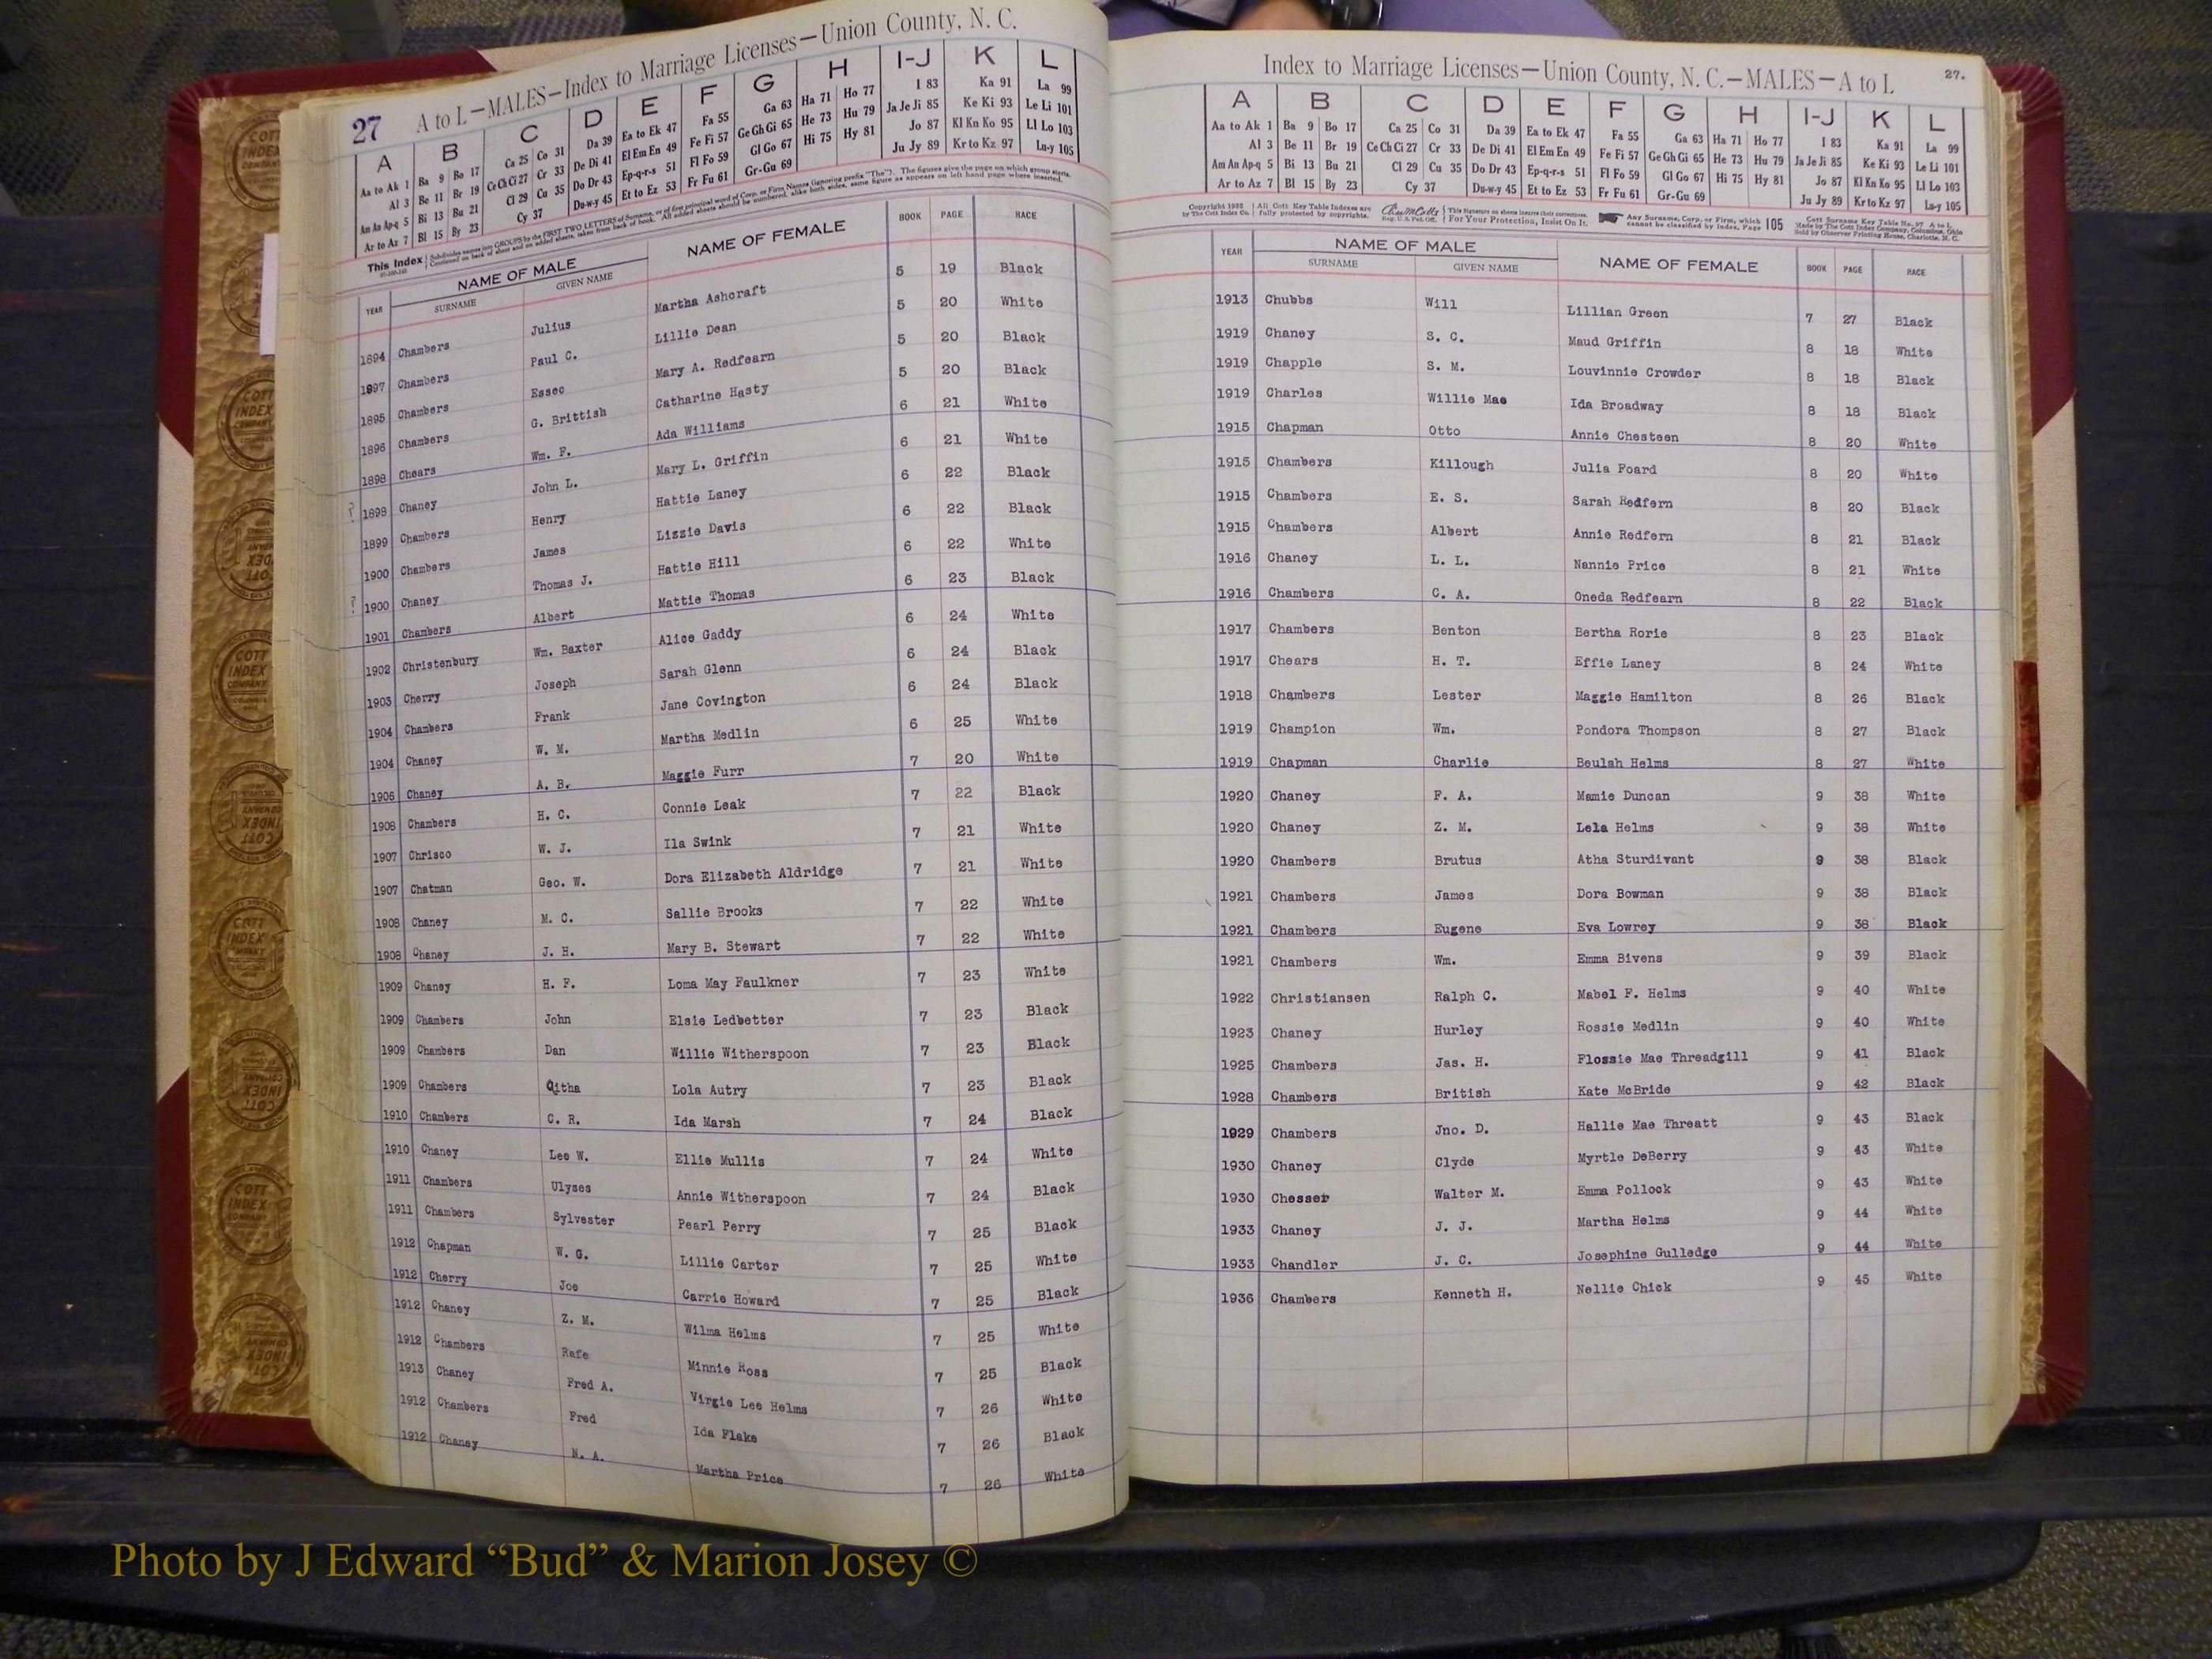 27 A to L—MALES—Index to Marriage Licenses—Union County, N. C.
A B C D E F G H I-J K L
Aa to Ak 1 Ba 9 Bo 17 Ca 25 Co 31 Da 39 Ea to Ek 47 Fa 55 Ga 63 Ha 71 Ho 77 I 83 Ka 91 La 99
Al 3 Be 11 Br 19 Ce Ch Ci 27 Cr 33 De Di 41 El Em En 49 Fe Fi 57 Ge Gh Gi 65 He 73 Hu 79 Ja Je Ji 85 Ke Ki 93 Le Li 101
Am An Ap-q 5 Bi 13 Bu 21 Cl 29 Cu 35 Do Dr 43 Ep-q-r-s 51 Fl Fo 59 Gl Go 67 Hi 75 Hy 81 Jo 87 Kl Kn Ko 95 Ll Lo 103
Ar to Az 7 Bl 15 By 23 Cy 37 Du-w-y 45 Et to Ez 53 Fr Fu 61 Gr-Gu 69 Ju Jy 89 Kr to Kz 97 Lu-y 105
This Index
YEAR NAME OF MALE NAME OF FEMALE BOOK PAGE RACE
SURNAME GIVEN NAME
1894 Chambers Julius Martha Ashcraft 5 19 Black
1897 Chambers Paul C. Lillie Dean 5 20 White
1895 Chambers Essec Mary A. Redfearn 5 20 Black
1896 Chambers G. Brittish Catharine Hasty 5 20 Black
1898 Chears Wm. F. Ada Williams 6 21 White
? 1898 Chaney John L. Mary L. Griffin 6 21 White
1899 Chambers Henry Hattie Laney 6 22 Black
1900 Chambers James Lizzie Davis 6 22 Black
? 1900 Chaney Thomas J. Hattie Hill 6 22 White
1901 Chambers Albert Mattie Thomas 6 23 Black
1902 Christenbury Wm. Baxter Alice Gaddy 6 24 White
1903 Cherry Joseph Sarah Glenn 6 24 Black
1904 Chambers Frank Jane Covington 6 24 Black
1904 Chaney W. M. Martha Medlin 6 25 White
1906 Chaney A. B. Maggie Furr 7 20 White
1908 Chambers H. C. Connie Leak 7 22 Black
1907 Chrisco W. J. Ila Swink 7 21 White
1907 Chatman Geo. W. Dora Elizabeth Aldridge 7 21 White
1908 Chaney M. C. Sallie Brooks 7 22 White
1908 Chaney J. H. Mary B. Stewart 7 22 White
1909 Chaney H. F. Loma May Faulkner 7 23 White
1909 Chambers John Elsie Ledbetter 7 23 Black
1909 Chambers Dan Willie Witherspoon 7 23 Black
1909 Chambers Qitha Lola Autry 7 23 Black
1910 Chambers C. R. Ida Marsh 7 24 Black
1910 Chaney Lee W. Ellie Mullis 7 24 White
1911 Chambers Ulyses Annie Witherspoon 7 24 Black
1911 Chambers Sylvester Pearl Perry 7 25 Black
1912 Chapman W. G. Lillie Carter 7 25 White
1912 Cherry Joe Carrie Howard 7 25 Black
1912 Chaney Z. M. Wilma Helms 7 25 White
1912 Chambers Rafe Minnie Ross 7 25 Black
1913 Chaney Fred A. Virgie Lee Helms 7 26 White
1912 Chambers Fred Ida Flake 7 26 Black
1912 Chaney N. A. Martha Price 7 26 White
Index to Marriage Licenses—Union County, N. C.—MALES—A to L 27.
A B C D E F G H I-J K L
Aa to Ak 1 Ba 9 Bo 17 Ca 25 Co 31 Da 39 Ea to Ek 47 Fa 55 Ga 63 Ha 71 Ho 77 I 83 Ka 91 La 99
Al 3 Be 11 Br 19 Ce Ch Ci 27 Cr 33 De Di 41 El Em En 49 Fe Fi 57 Ge Gh Gi 65 He 73 Hu 79 Ja Je Ji 85 Ke Ki 93 Le Li 101
Am An Ap-q 5 Bi 13 Bu 21 Cl 29 Cu 35 Do Dr 43 Ep-q-r-s 51 Fl Fo 59 Gl Go 67 Hi 75 Hy 81 Jo 87 Kl Kn Ko 95 Ll Lo 103
Ar to Az 7 Bl 15 By 23 Cy 37 Du-w-y 45 Et to Ez 53 Fr Fu 61 Gr-Gu 69 Ju Jy 89 Kr to Kz 97 Lu-y 105
For Your Protection, Insist On It. Any Surname, Corp. or Firm, which cannot be classified by Index, Page 105
YEAR NAME OF MALE NAME OF FEMALE BOOK PAGE RACE
SURNAME GIVEN NAME
1913 Chubbs Will Lillian Green 7 27 Black
1919 Chaney S. C. Maud Griffin 8 18 White
1919 Chapple S. M. Louvinnie Crowder 8 18 Black
1919 Charles Willie Mae Ida Broadway 8 18 Black
1915 Chapman Otto Annie Chesteen 8 20 White
1915 Chambers Killough Julia Foard 8 20 White
1915 Chambers E. S. Sarah Redfern 8 20 Black
1915 Chambers Albert Annie Redfern 8 21 Black
1916 Chaney L. L. Nannie Price 8 21 White
1916 Chambers C. A. Oneda Redfearn 8 22 Black
1917 Chambers Benton Bertha Rorie 8 23 Black
1917 Chears H. T. Effie Laney 8 24 White
1918 Chambers Lester Maggie Hamilton 8 26 Black
1919 Champion Wm. Pondora Thompson 8 27 Black
1919 Chapman Charlie Beulah Helms 8 27 White
1920 Chaney F. A. Mamie Duncan 9 38 White
1920 Chaney Z. M. Lela Helms 9 38 White
1920 Chambers Brutus Atha Sturdivant 9 38 Black
1921 Chambers James Dora Bowman 9 38 Black
1921 Chambers Eugene Eva Lowrey 9 38 Black
1921 Chambers Wm. Emma Bivens 9 39 Black
1922 Christiansen Ralph C. Mabel F. Helms 9 40 White
1923 Chaney Hurley Rossie Medlin 9 40 White
1925 Chambers Jas. H. Flossie Mae Threadgill 9 41 Black
1928 Chambers British Kate McBride 9 42 Black
1929 Chambers Jno. D. Hallie Mae Threatt 9 43 Black
1930 Chaney Clyde Myrtle DeBerry 9 43 White
1930 Chesser Walter M. Emma Pollock 9 43 White
1933 Chaney J. J. Martha Helms 9 44 White
1933 Chandler J. C. Josephine Gulledge 9 44 White
1936 Chambers Kenneth H. Nellie Chick 9 45 White
Photo by J Edward “Bud” & Marion Josey ©